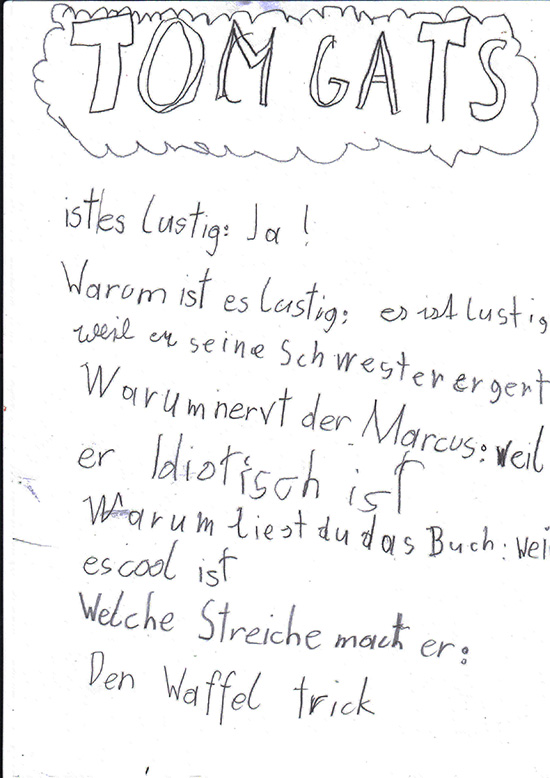 TOM GATS
ist es lustig: Ja!
Warum ist es lustig: es ist lustig
weil er seine Schwester ergert
Warum nervt der Marcus: weil
er Idiotisch ist
Warum liest du das Buch: wei
es cool ist
Welche Streiche macht er:
Den Waffel trick